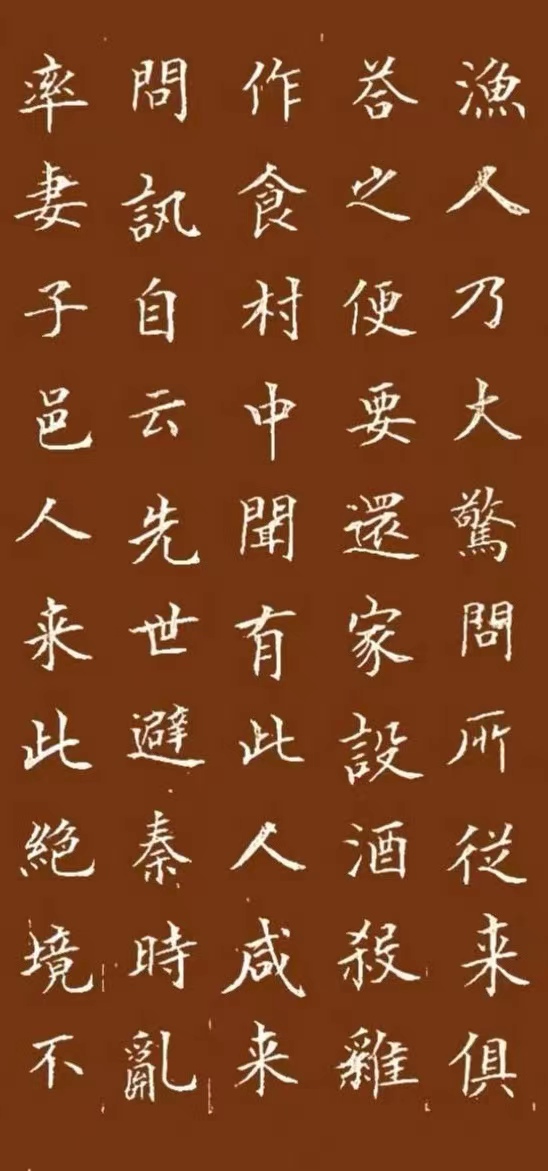 漁人乃大驚問所從来俱
荅之便要還家設酒殺雞
作食村中聞有此人咸来
問訊自云先世避秦時亂
率妻子邑人来此絕境不